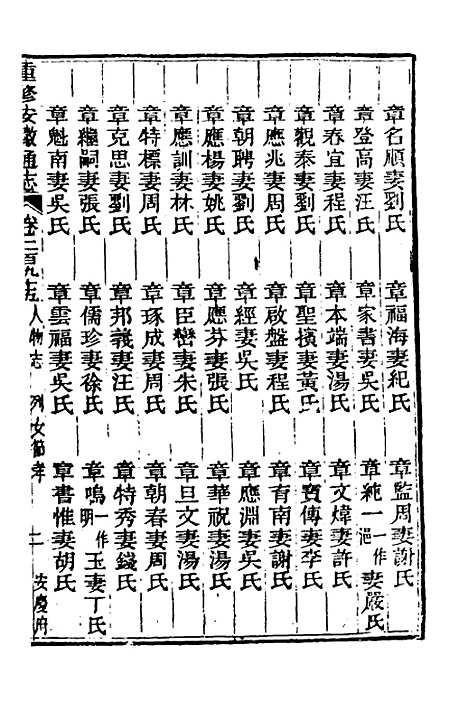 章名順妻劉氏　章福海妻紀氏　章監周妻謝氏
章登高妻汪氏　章家書妻吳氏　章純一一作浥妻嚴氏
章春宜妻程氏　章本端妻湯氏　章文煒妻許氏
章觀泰妻劉氏　章聖擯妻黃氏　章寶傳妻李氏
章應兆妻周氏　章啟盤妻程氏　章育南妻謝氏
章朝聘妻劉氏　章經妻吳氏　章應淵妻吳氏
章應楊妻姚氏　章應芬妻張氏　章華祝妻湯氏
章應訓妻林氏　章臣巒妻朱氏　章旦文妻湯氏
章特標妻周氏　章琢成妻周氏　章朝春妻周氏
章克思妻劉氏　章邦義妻汪氏　章特秀妻錢氏
章繼嗣妻張氏　章儒珍妻徐氏　章鳴一作明玉妻丁氏
章魁南妻吳氏　章雲福妻吳氏　章書惟妻胡氏
重修安徽通志　卷二百九十五　人物志　列女節孝　二　安慶府